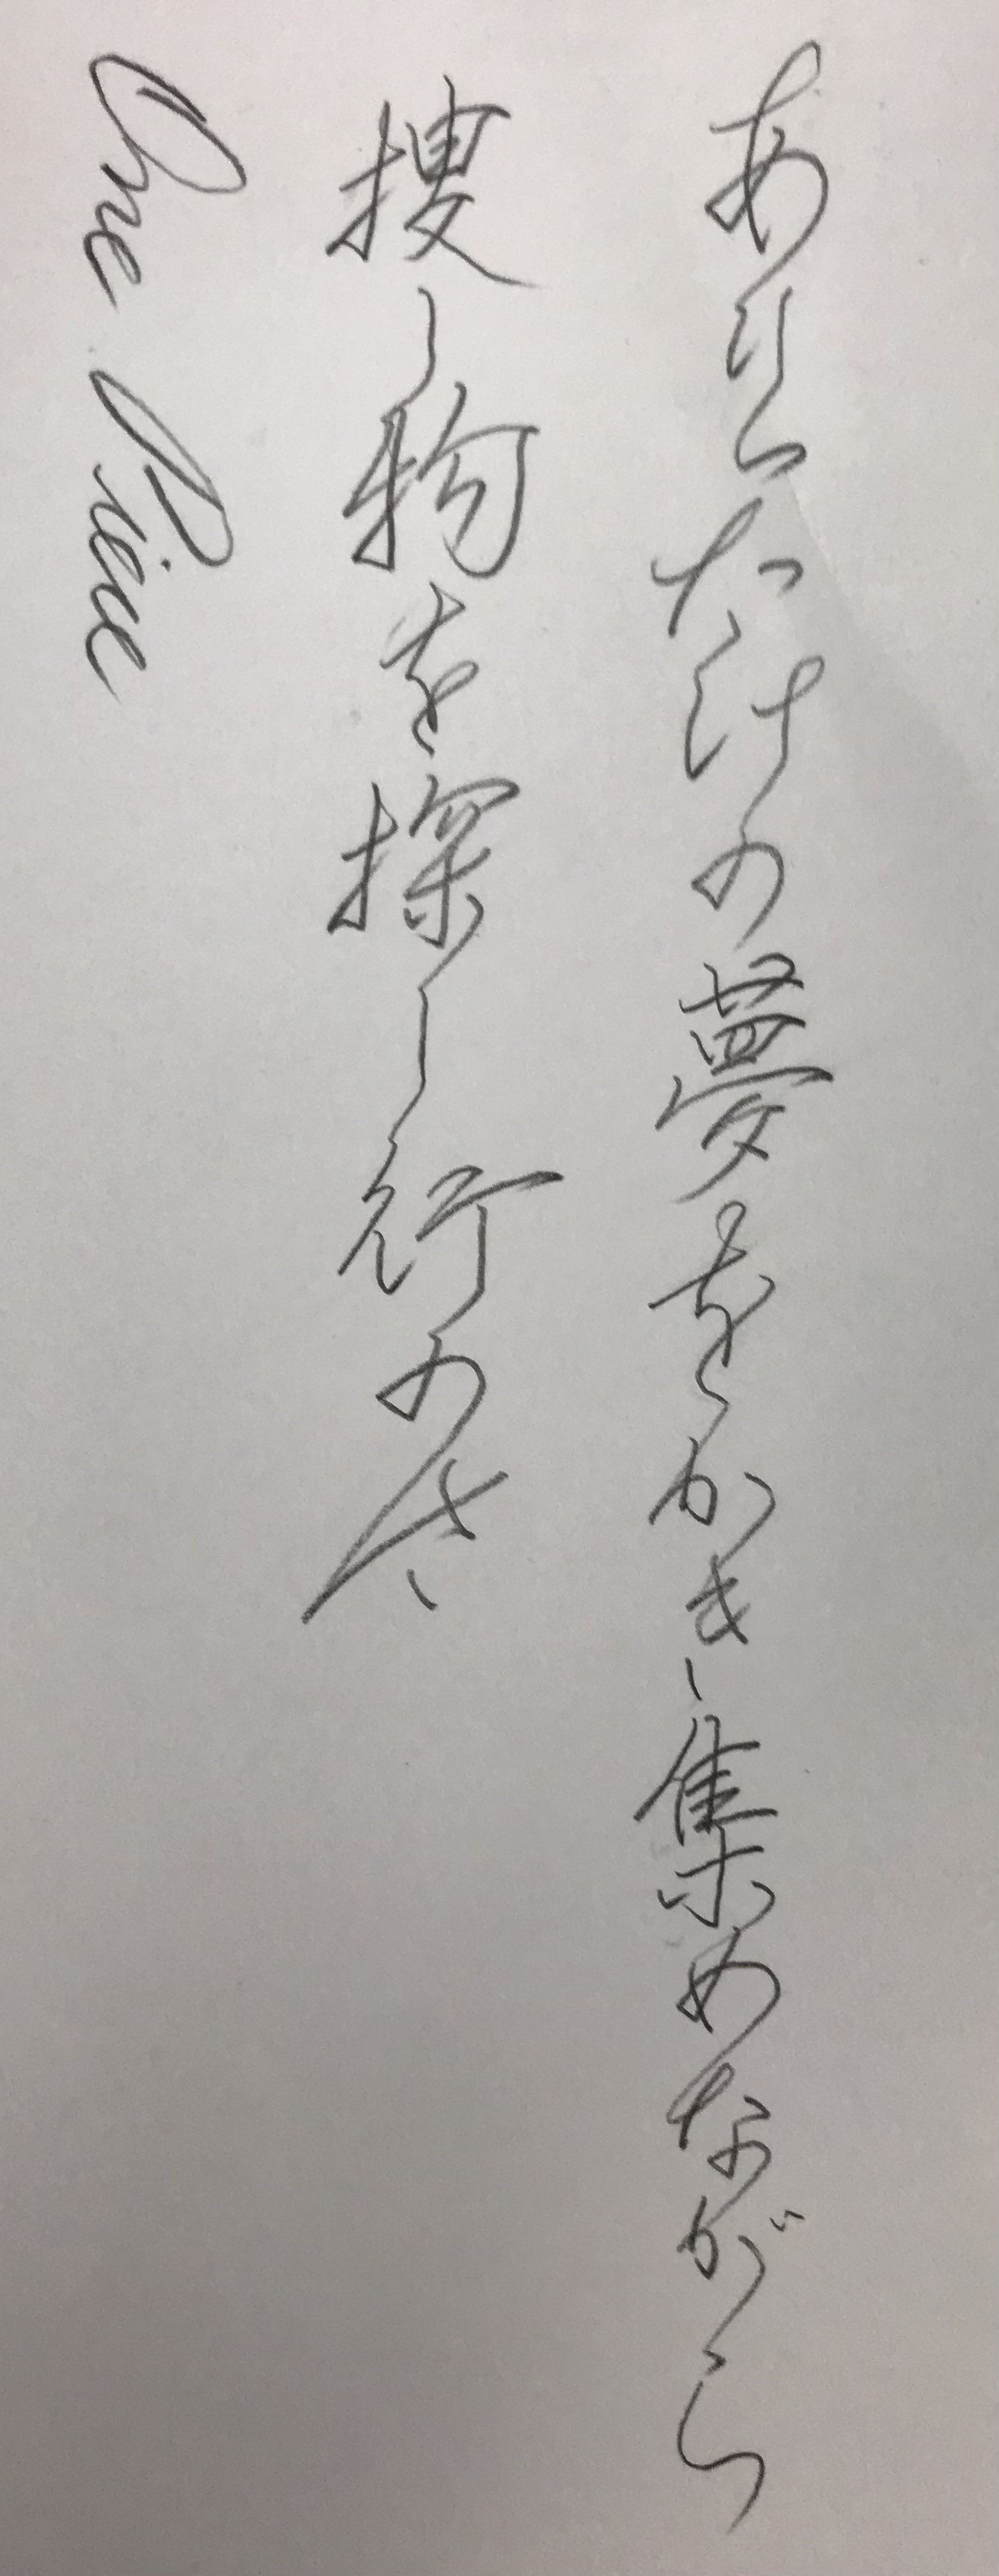 ありったけの夢をかき集めながら
捜し物を探し行のさ
One Piece